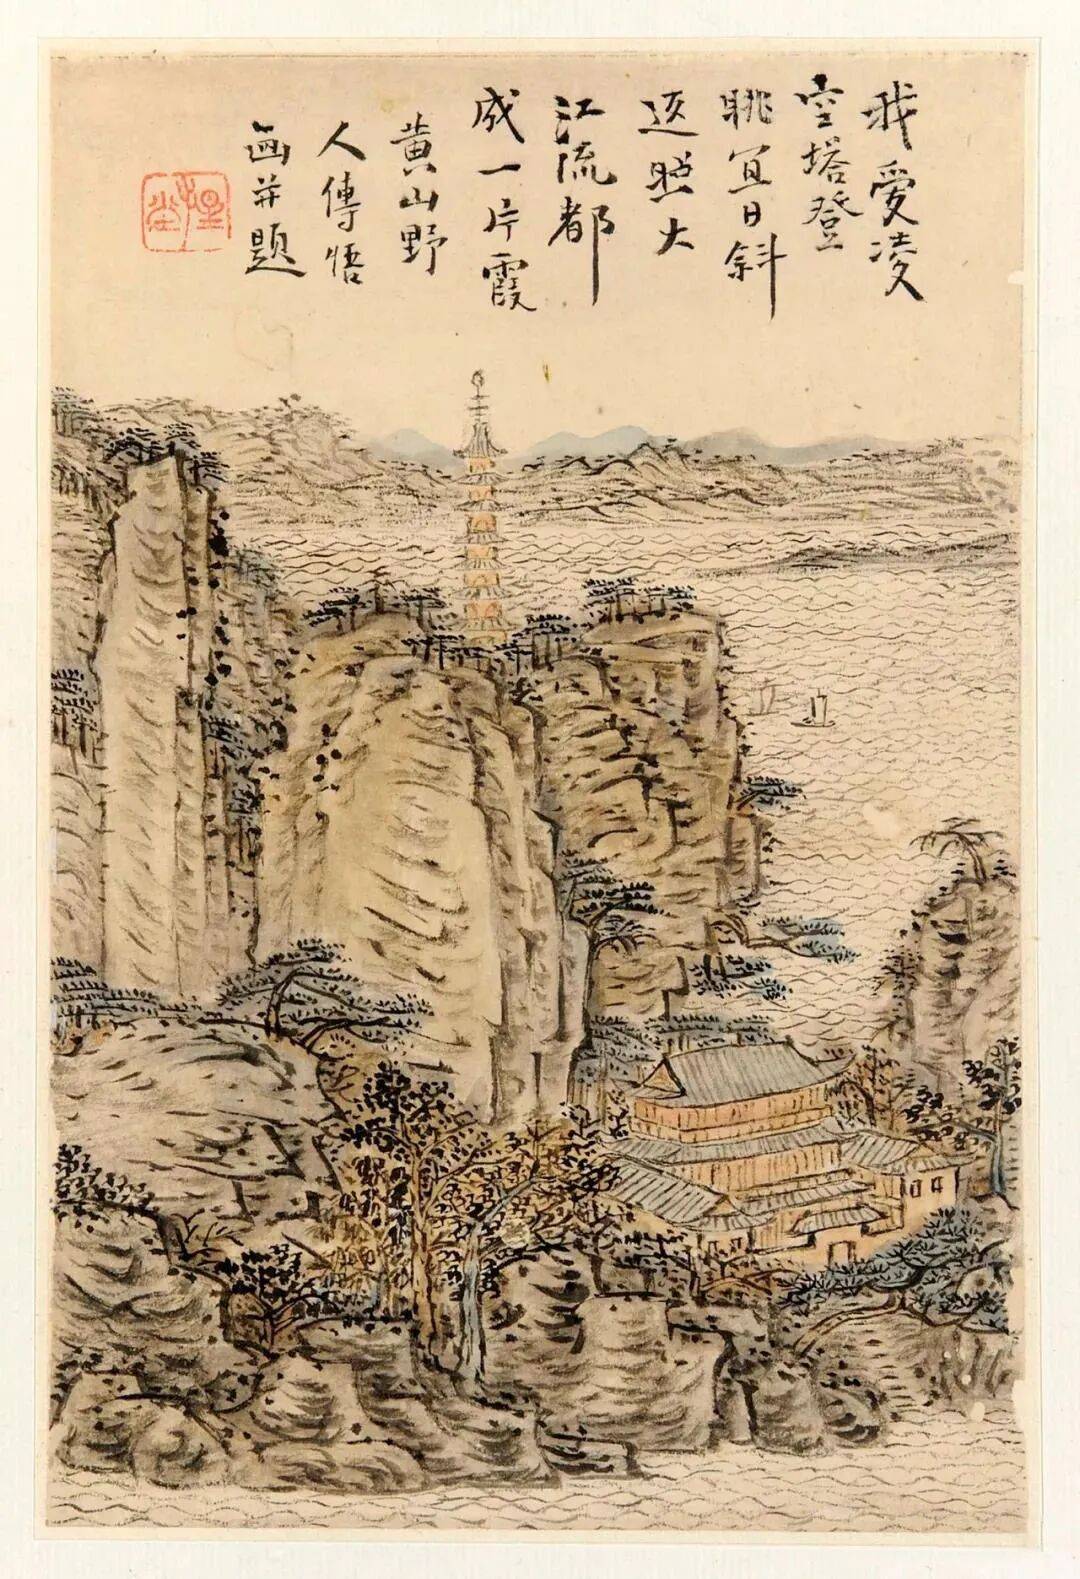 我愛凌
空塔登
眺宜日斜
返照大
江流都
成一片霞
黄山野
人傳悟
画并題